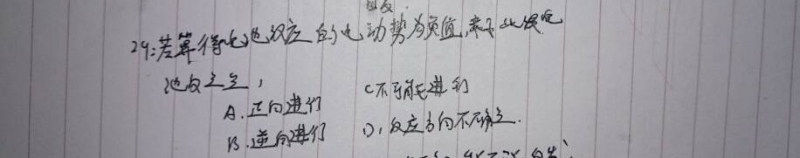 29:若算得电池反应的电动势为负值,表示此原电
池反应是,
A.正向进行 C不可能进行
B.逆向进行 D,反应方向不确定.